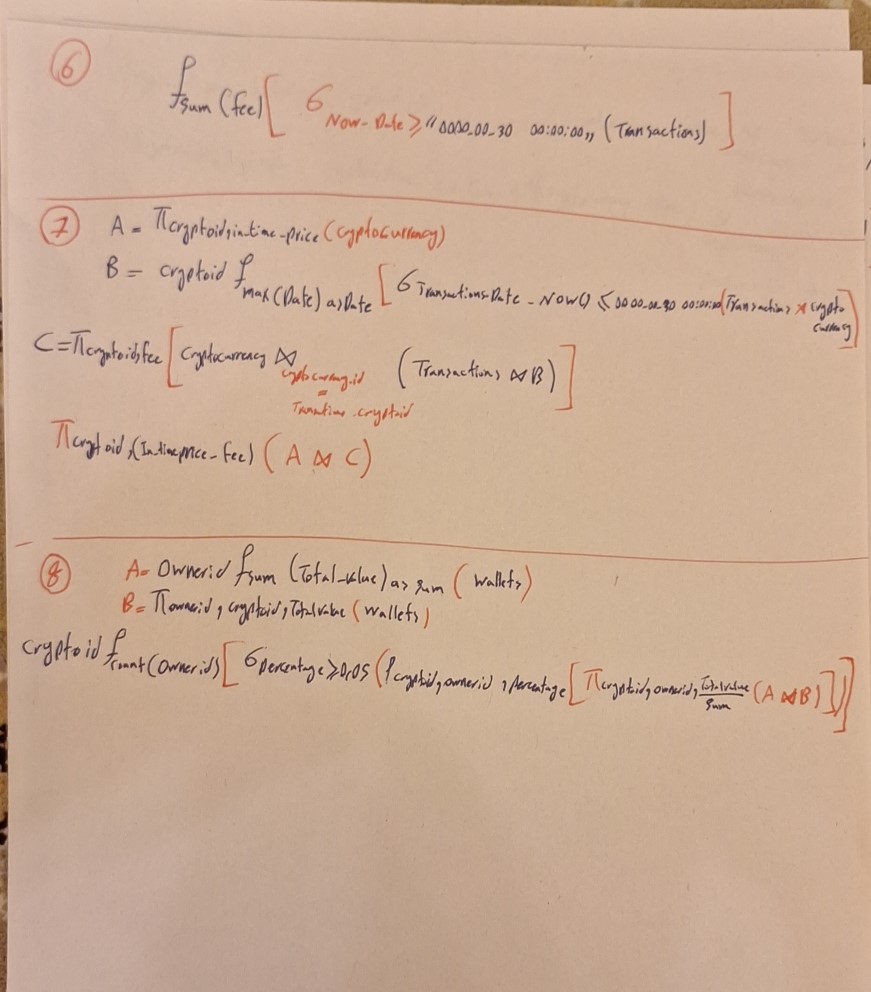 6
ƒsum(fee)[ σ Now-Date≥"0000_00_30 00:00:00"(Transactions) ]
7
A = πcryptoid,in_time_price(cryptocurrency)
B = cryptoid ƒmax(Date)as Date[ σTransactions.Date_Now() ≤0000_00_30 00:00:00(Transactions × crypto
currency)
C=πcryptoid,fee[cryptocurrency ⋈ cryptocurrency.id (Transactions ⋈ B) ]
=
.cryptoid
πcryptoid,(In_timeprice-fee)( A ⋈ C)
8
A= Ownerid ƒsum (Total_value)as sum (wallets)
B= πownerid, cryptoid,Totalvalue(wallets)
cryptoid ƒcount(ownerid)[ σpercentage≥0,05(ρcryptoid,ownerid,percentage[πcryptoid,ownerid,Totalvalue(A ⋈B)])]
sum